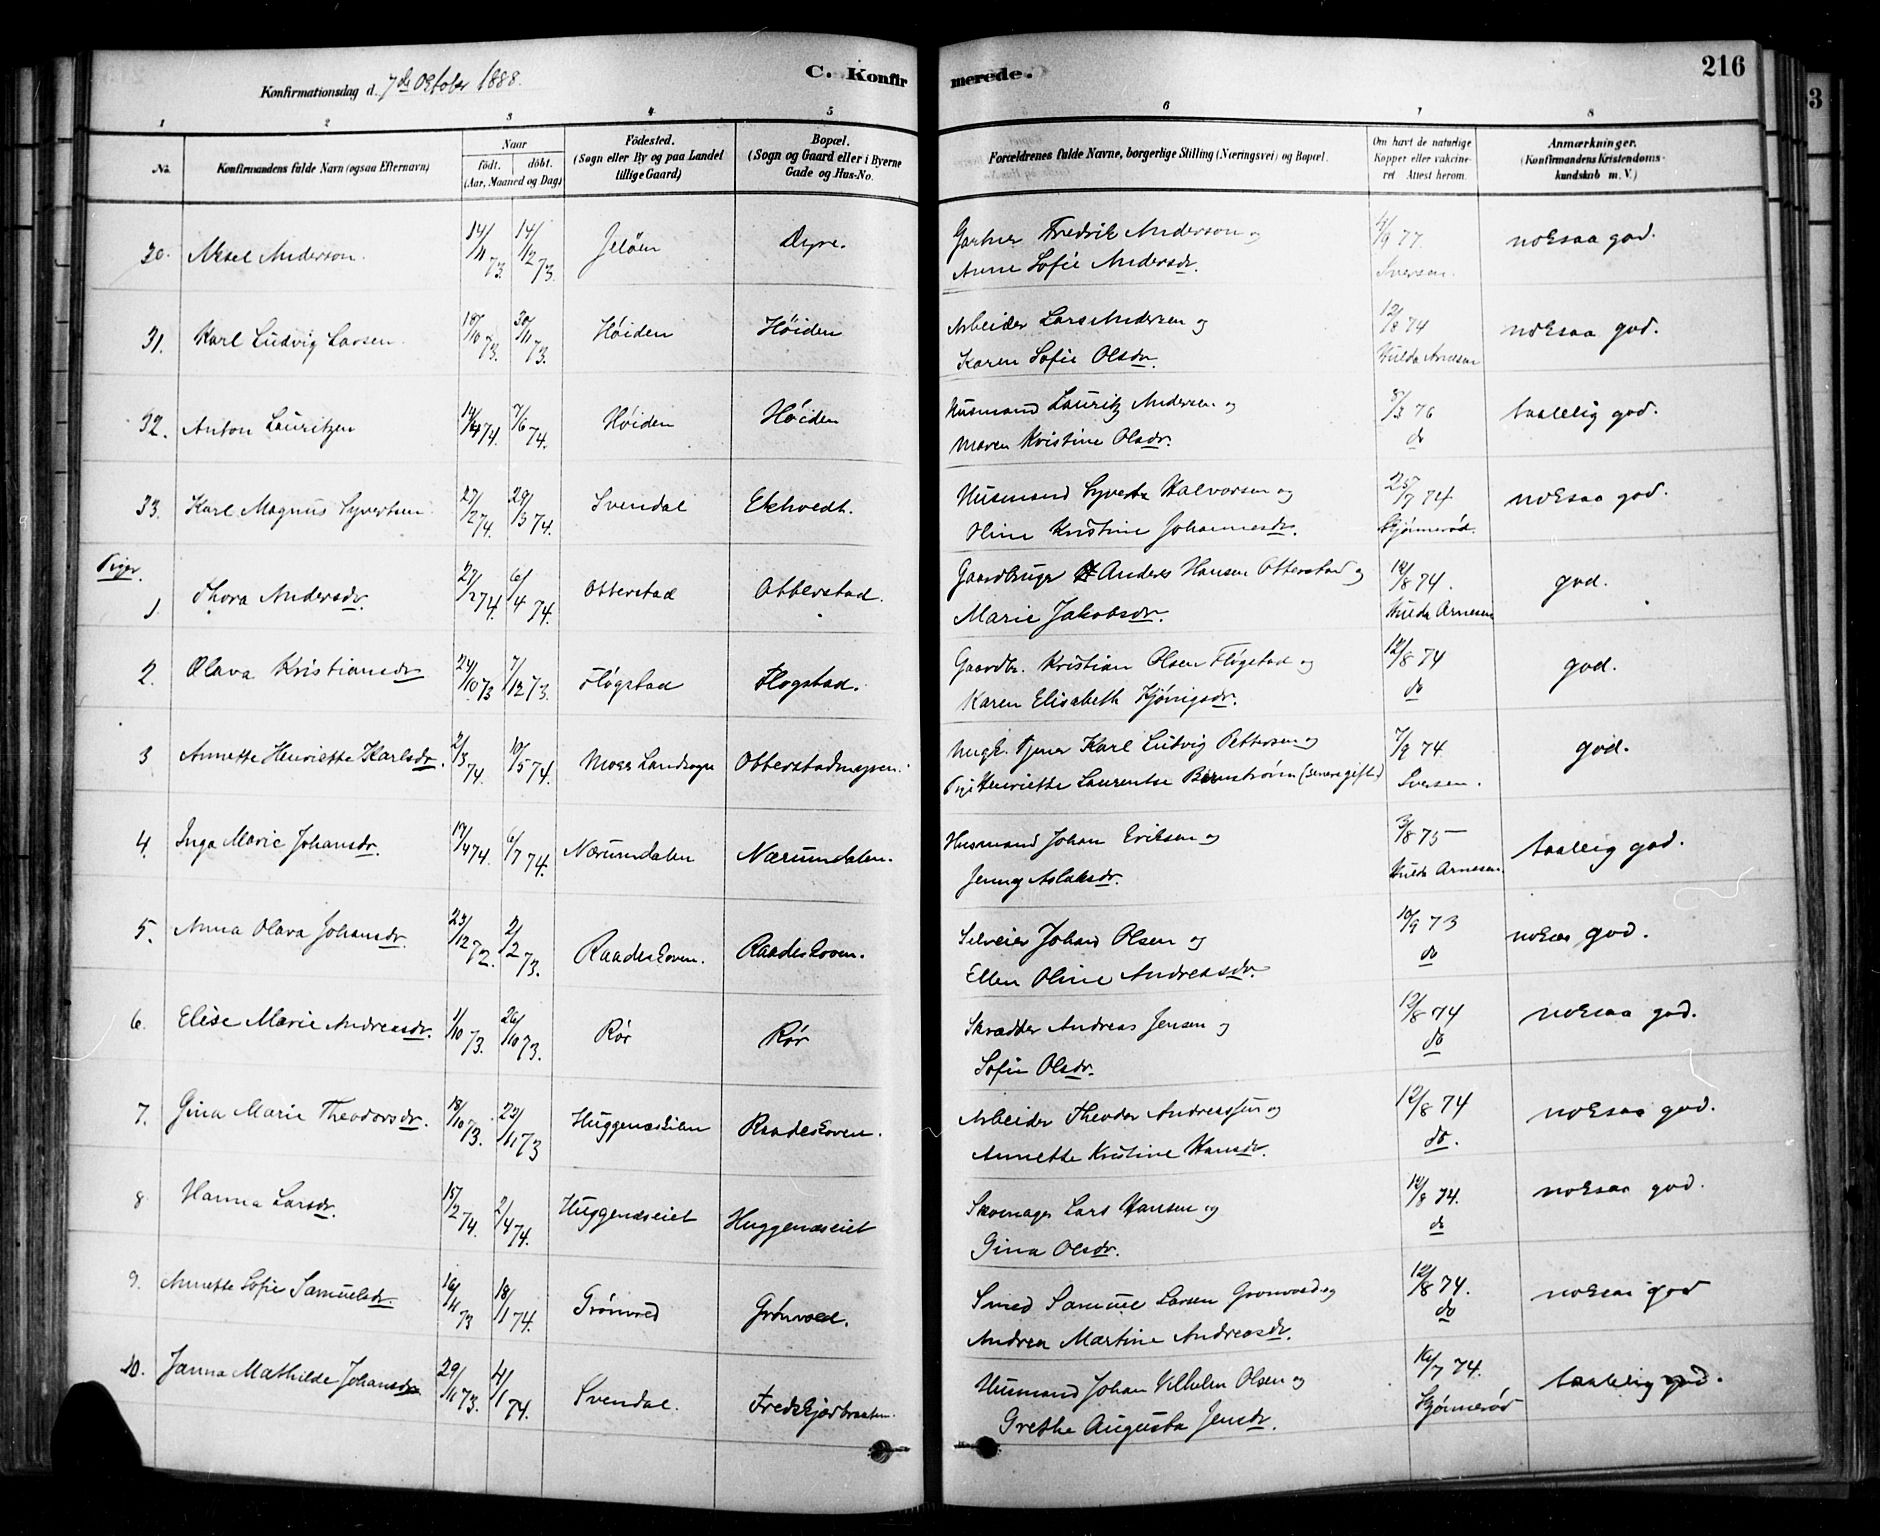 216
C. Konfir merede.
Konfirmationsdag d. 7de Oktober 1888.
1 2 3 4 5 6 7 8
No. Konfirmandens fulde Navn (ogsaa Efternavn) Naar født. døbt. (Aar, Maaned og Dag) Födested. (Sogn eller By og paa Landet tillige Gaard) Bopæl. (Sogn og Gaard eller i Byerne Gade og Hus-No. Forældrenes fulde Navne, borgerlige Stilling (Næringsvei) og Bopæl. Om havt de naturlige Kopper eller vakcineret Attest herom. Anmærkninger. (Konfirmandens Kristendomskundskab m. V.)
30. Aksel Anderson. 14/11 73. 14/12 73. Jeløen Dyre. Gartner Fredrik Anderson og 4/9 77. noksaa god.
Anne Sofie Andersdr. Iversen.
31. Karl Ludvig Larsen. 18/10 73. 30/11 73. Høiden Høiden Arbeider Lars Andersen og 12/8 74 noksaa god.
Karen Sofie Olsdr. Hulda Arnesen
32. Anton Lauritzen 14/4 74. 7/6 74. Høiden Høiden Husmand Lauritz Andersen og 8/3 76 taalelig god.
Maren Kristine Olsdr. do
33. Karl Magnus Syvertsen 27/2 74. 29/3 74. Svendal Ekhvedt. Husmand Syvert Halvorsen og 25/7 74 noksaa god.
Oline Kristine Johannesdr. Skjønnerød.
Piger.
1. Thora Andersdr. 27/2 74. 6/4 74. Otterstad Otterstad. Gaardbruger Anders Hansen Otterstad og 12/8 74. god.
Marie Jakobsdr. Hulda Arnesen
2. Olava Kristiansdr 24/10 73 7/12 73. Fløgstad Flogstad. Gaardbr. Kristian Olsen Fløgstad og 12/8 74 god.
Karen Elisabeth Kjønigsdr. do
3 Annette Henriette Karlsdr. 2/3 74. 10/5 74. Moss Landsogn Otterstadmyren. Ungk. Tjener Karl Ludvig Pettersen og 7/9 74 god.
Pige Henriette Laurentse Bernstrøm (senere gifte) Iversen.
4. Inga Marie Johansdr. 19/4 74. 6/7 74. Nærumdalen Nærumdalen. Husmand Johan Eriksen og 3/8 75 taalelig god.
Jenny Aslaksdr. Hulda Arnesen.
5. Anna Olava Johansdr. 23/12 72. 2/2 73. Raadeskoven. Raadeskoven. Seleier Johan Olsen og 10/9 73 noksaa god.
Ellen Oline Andreasdr. do
6. Elise Marie Andreasdr. 1/10 73. 26/10 73. Rør Rør Skrædder Andreas Jensen og 12/8 74 noksaa god.
Sofie Olsdr. do
7. Gina Marie Theodorsdr. 18/10 73. 23/11 73 Huggenæseien Raadeskoven. Arbeider Theodor Andreassen og 12/8 74 noksaa god.
Annette Kristine Hansdr. do.
8 Hanna Larsdr. 15/2 74. 2/4 74. Huggenæseiet Huggenæseiet Skomager Lars Hansen og 12/8 74. noksaa god.
Gina Olsdr. do
9. Annette Sofie Samuelsdr. 16/11 73 18/1 74. Grønvold Grønvold. Smed Samuel Larsen Gronvold og 12/8 74. noksaa god
Andrea Martine Andreasdr. do
10. Janna Mathilde Johansdr 29/11 73. 4/1 74. Svendal. Fredskjærbraaten. Husmand Johan Vilhelm Olsen og 14/7 74. taalelig god.
Grethe Augusta Jensdr. Skjønnerød